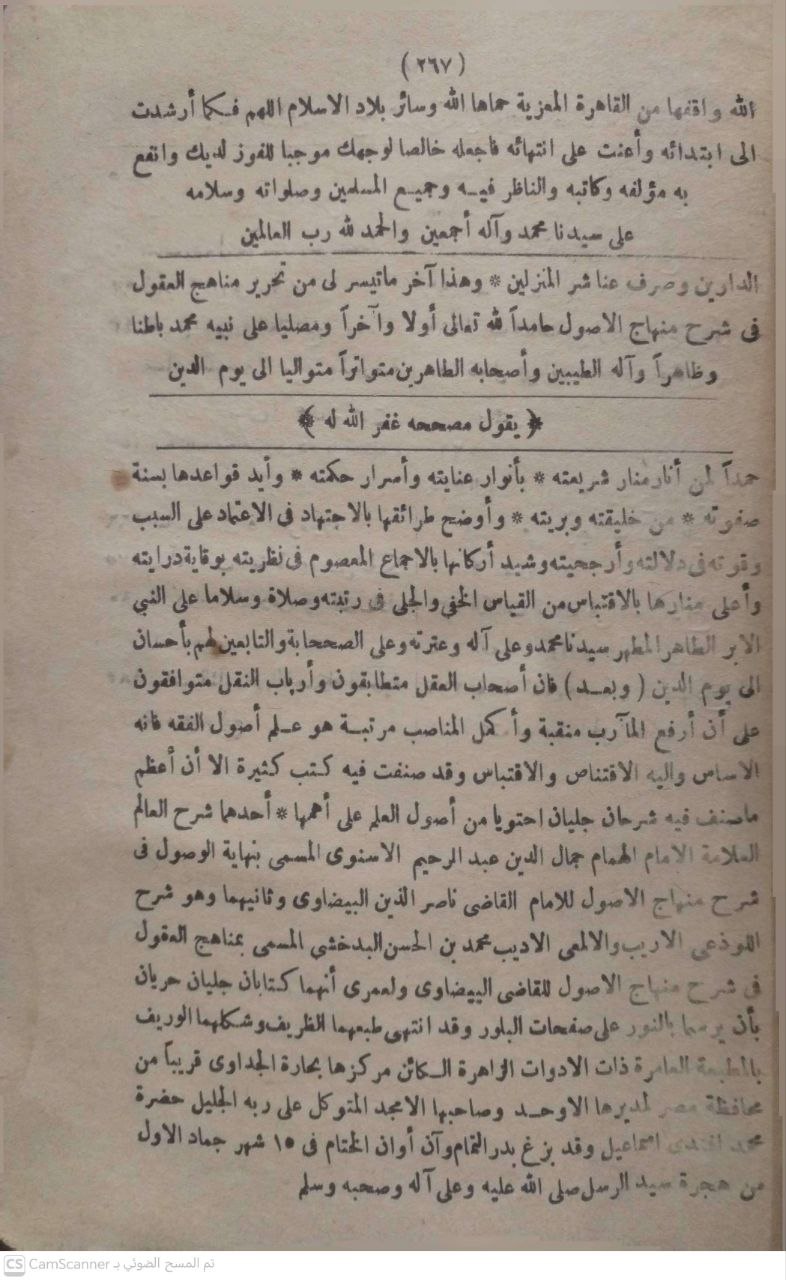 (٢٦٧)
الله واقفها من القاهرة المعزية حماها الله وسائر بلاد الاسلام اللهم فكما أرشدت
الى ابتدائه وأعنت على انتهائه فاجعله خالصا لوجهك موجبا للفوز لديك وانفع
به مؤلفه وكاتبه والناظر فيه وجميع المسلمين وصلواته وسلامه
على سيدنا محمد وآله أجمعين والحمد لله رب العالمين
الدارين وصرف عنا شر المنزلين * وهذا آخر ماتيسر لى من تحرير مناهج العقول
فى شرح منهاج الاصول حامداً لله تعالى أولا وآخراً ومصليا على نبيه محمد باطنا
وظاهراً وآله الطيبين وأصحابه الطاهرين متواتراً متواليا الى يوم الدين
﴿ يقول مصححه غفر الله له ﴾
حمداً لمن أنار منار شريعته * بأنوار عنايته وأسرار حكمته * وأيد قواعدها بسنة
صفوته * من خليقته وبريته * وأوضح طرائقها بالاجتهاد فى الاعتماد على السبب
وقوته فى دلالته وأرجحيته وشيد أركانها بالاجماع المعصوم فى نظريته بوقاية درايته
وأعلى منارها بالاقتباس من القياس الخفى والجلى فى رتبته وصلاة وسلاما على النبي
الابر الطاهر المطهر سيدنا محمد وعلى آله وعترته وعلى الصححابة والتابعين لهم بأحسان
الى يوم الدين ( وبعد ) فان أصحاب العقل متطابقون وأرباب النقل متوافقون
على أن أرفع المآرب منقبة وأكمل المناصب مرتبة هو علم أصول الفقه فانه
الاساس واليه الاقتناص والاقتباس وقد صنفت فيه كتب كثيرة الا أن أعظم
ماصنف فيه شرحان جليان احتويا من أصول العلم على أهمها * أحدهما شرح العالم
العلامة الامام الهمام جمال الدين عبد الرحيم الاسنوى المسمى بنهاية الوصول فى
شرح منهاج الاصول للامام القاضى ناصر الذين البيضاوى وثانيهما وهو شرح
اللوذعى الاريب والالمعى الاديب محمد بن الحسن البدخشى المسمى بمناهج العقول
فى شرح منهاج الاصول للقاضى البيضاوى ولعمرى أنهما كتابان جليان حريان
بأن يرسما بالنور على صفحات البلور وقد انتهى طبعهما الظريف وشكلهما الوريف
بالمطبعة العامرة ذات الادوات الزاهرة الكائن مركزها بحارة الجداوى قريباً من
محافظة مصر لمديرها الاوحد وصاحبها الامجد المتوكل على ربه الجليل حضرة
محمد افندى اسماعيل وقد بزغ بدر التمام وآن أوان الختام فى ١٥ شهر جماد الاول
من هجرة سيد الرسل صلى الله عليه وعلى آله وصحبه وسلم
CS CamScanner تم المسح الضوئي بـ